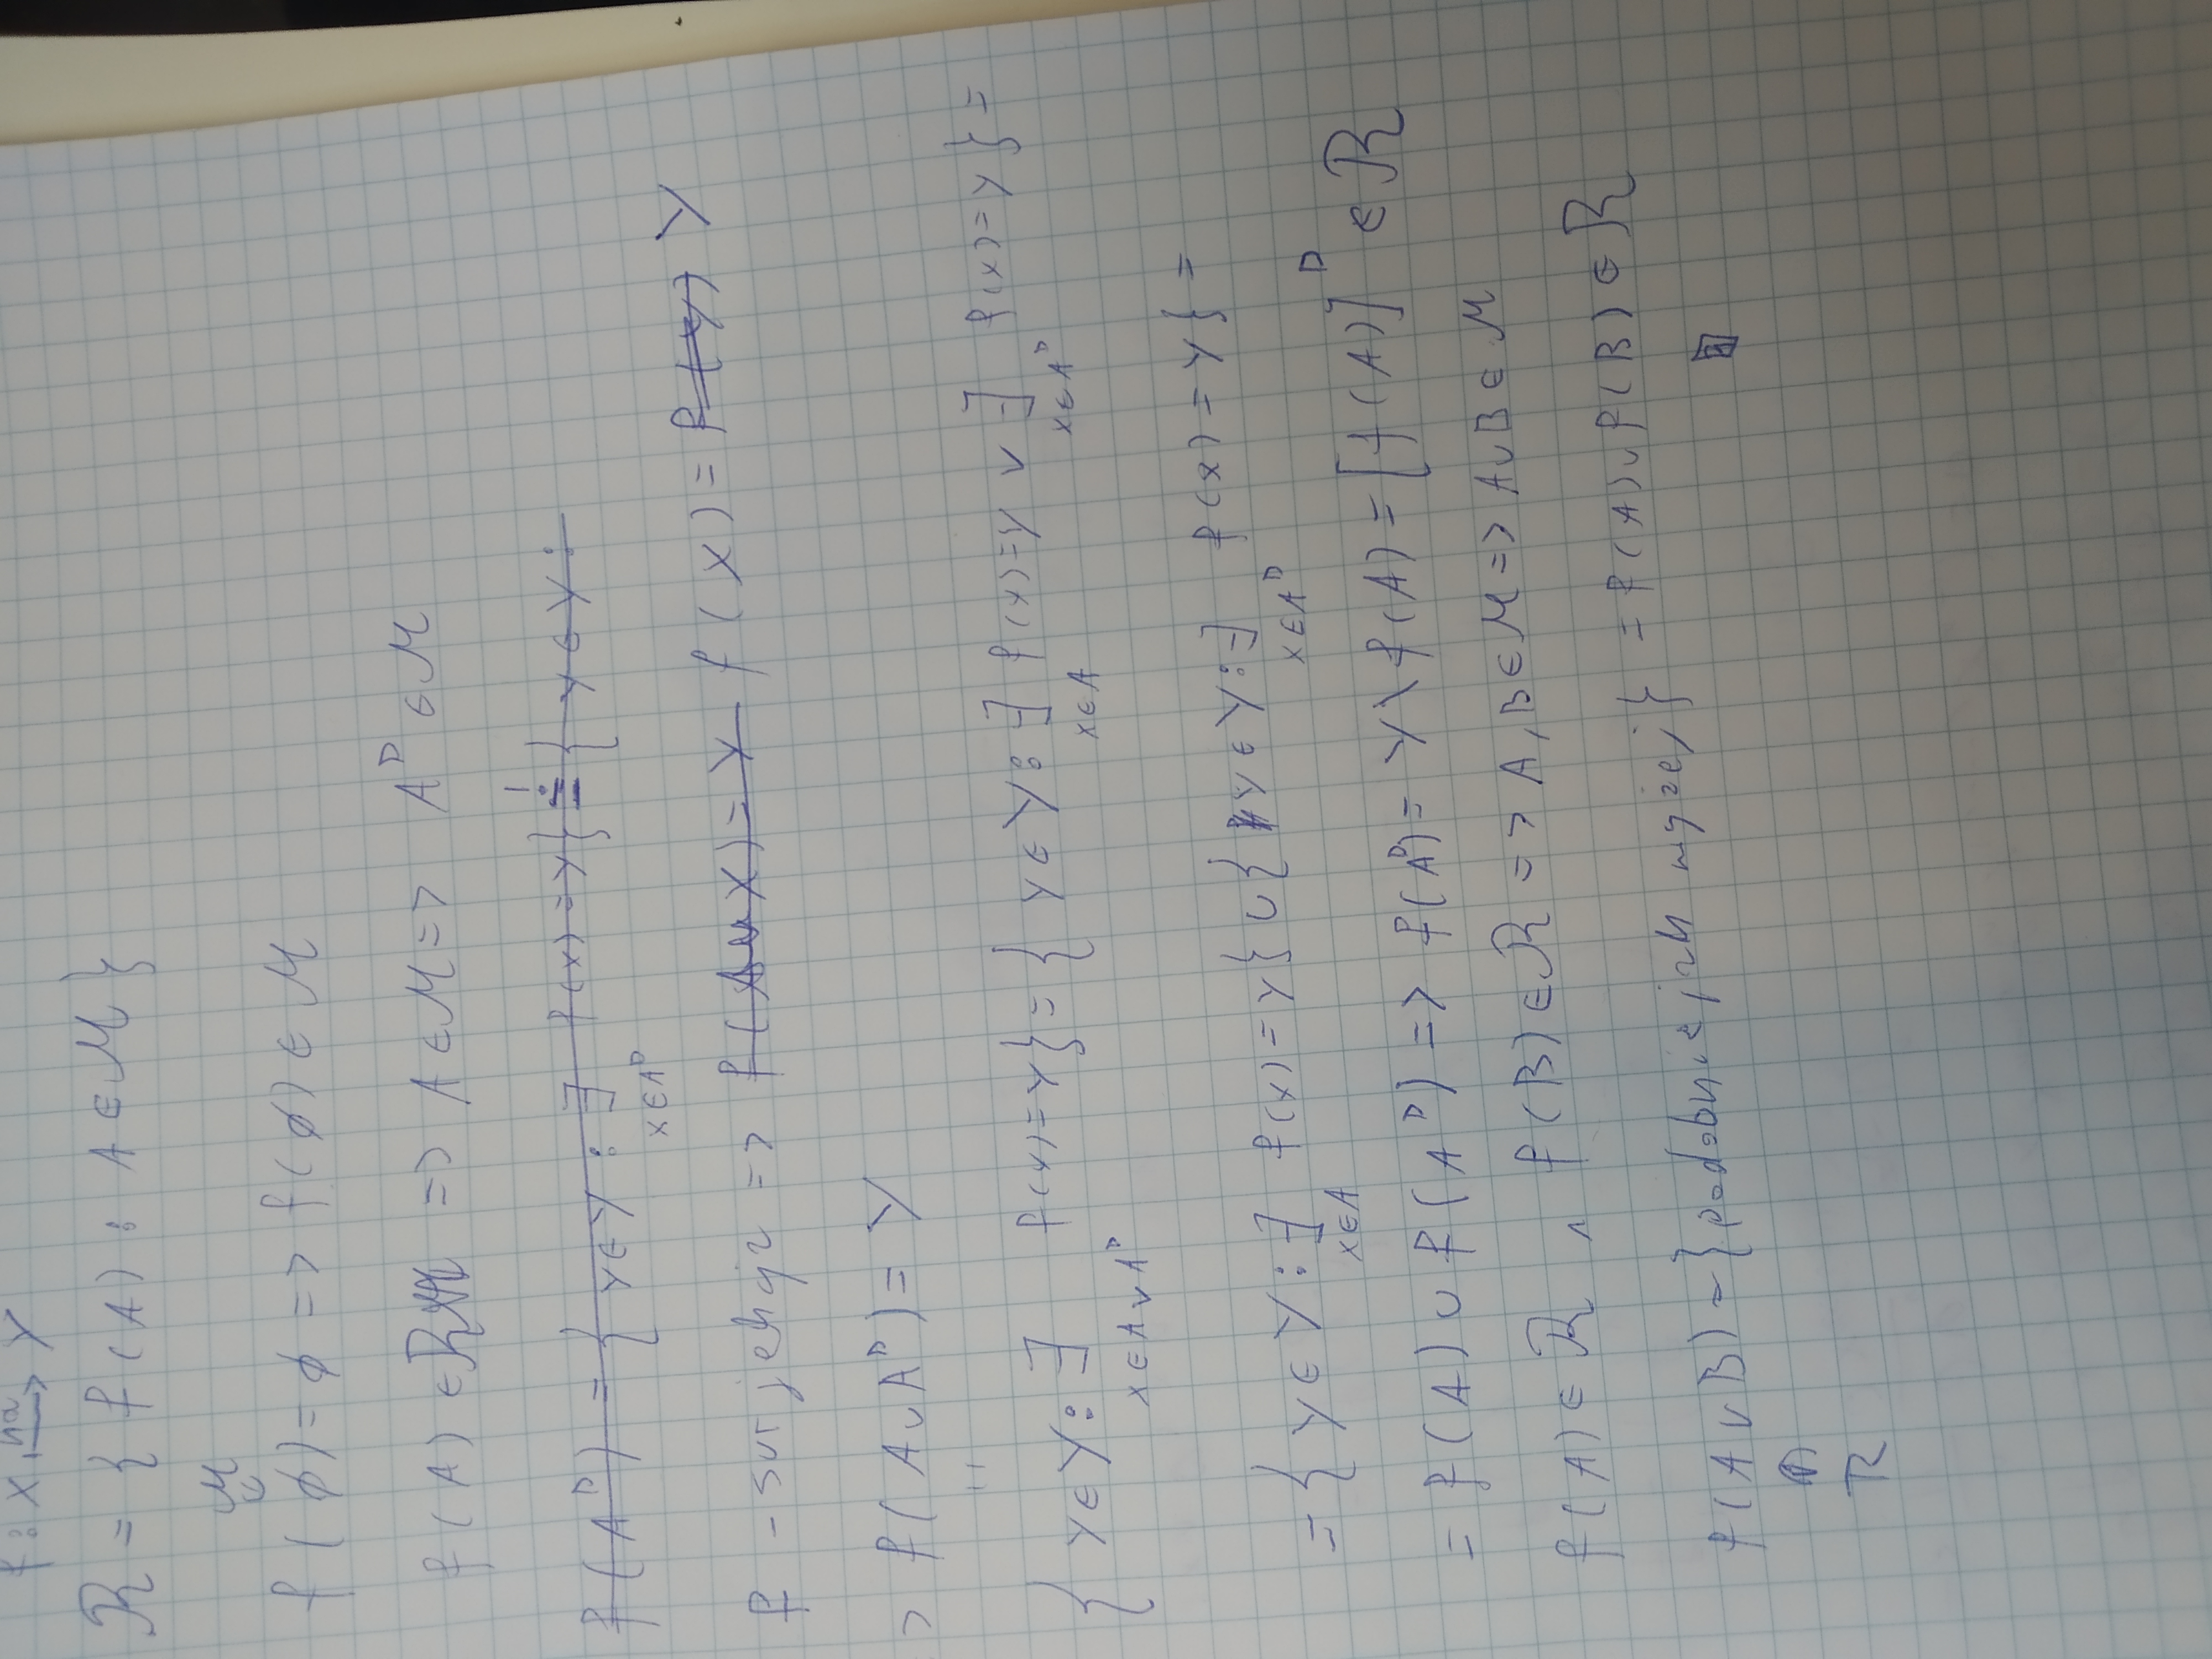 f: X na→ Y
ℛ = { f(A) : A ∈ ℳ }
ℳ
∪
f(∅) = ∅ => f(∅) ∈ ℳ
f(A) ∈ ℛ => A ∈ ℳ => A^D ∈ ℳ
f(A^D) = { y ∈ Y : ∃ f(x) = y } = { y ∈ Y :
x ∈ A^D
f - surjekcja => f(X) = Y f(X) = f(Y) Y
> f(A ∪ A^D) = Y
"
{ y ∈ Y : ∃ f(x) = y } = { y ∈ Y : ∃ f(x) = y ∨ ∃ f(x) = y } =
x ∈ A ∪ A^D x ∈ A x ∈ A^D
= { y ∈ Y : ∃ f(x) = y } ∪ { y ∈ Y : ∃ f(x) = y } =
x ∈ A x ∈ A^D
= f(A) ∪ f(A^D) => f(A^D) = Y \ f(A) = [f(A)]^D ∈ ℛ
f(A) ∈ ℛ ∧ f(B) ∈ ℛ => A, B ∈ ℳ => A ∪ B ∈ ℳ
f(A ∪ B) = { podobnie, jak wyżej } = f(A) ∪ f(B) ∈ ℛ
R